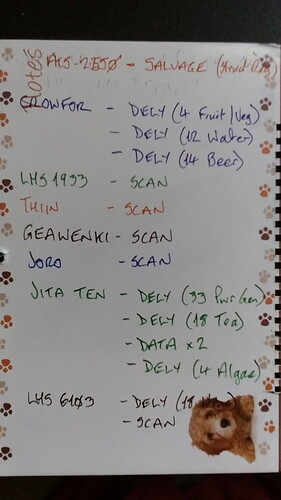 Notes
ALS-2550 - SALVAGE
CROWFOR - DELY (4 Fruit/Veg)
- DELY (12 Water)
- DELY (14 Beer)
LHS 1933 - SCAN
THIIN - SCAN
GEAWENKI - SCAN
JORO - SCAN
JITA TEN - DELY (33 Pwr Gen)
- DELY (18 Tea)
- DATA x2
- DELY (4 Algae)
LHS 6103 - DELY (18
- SCAN